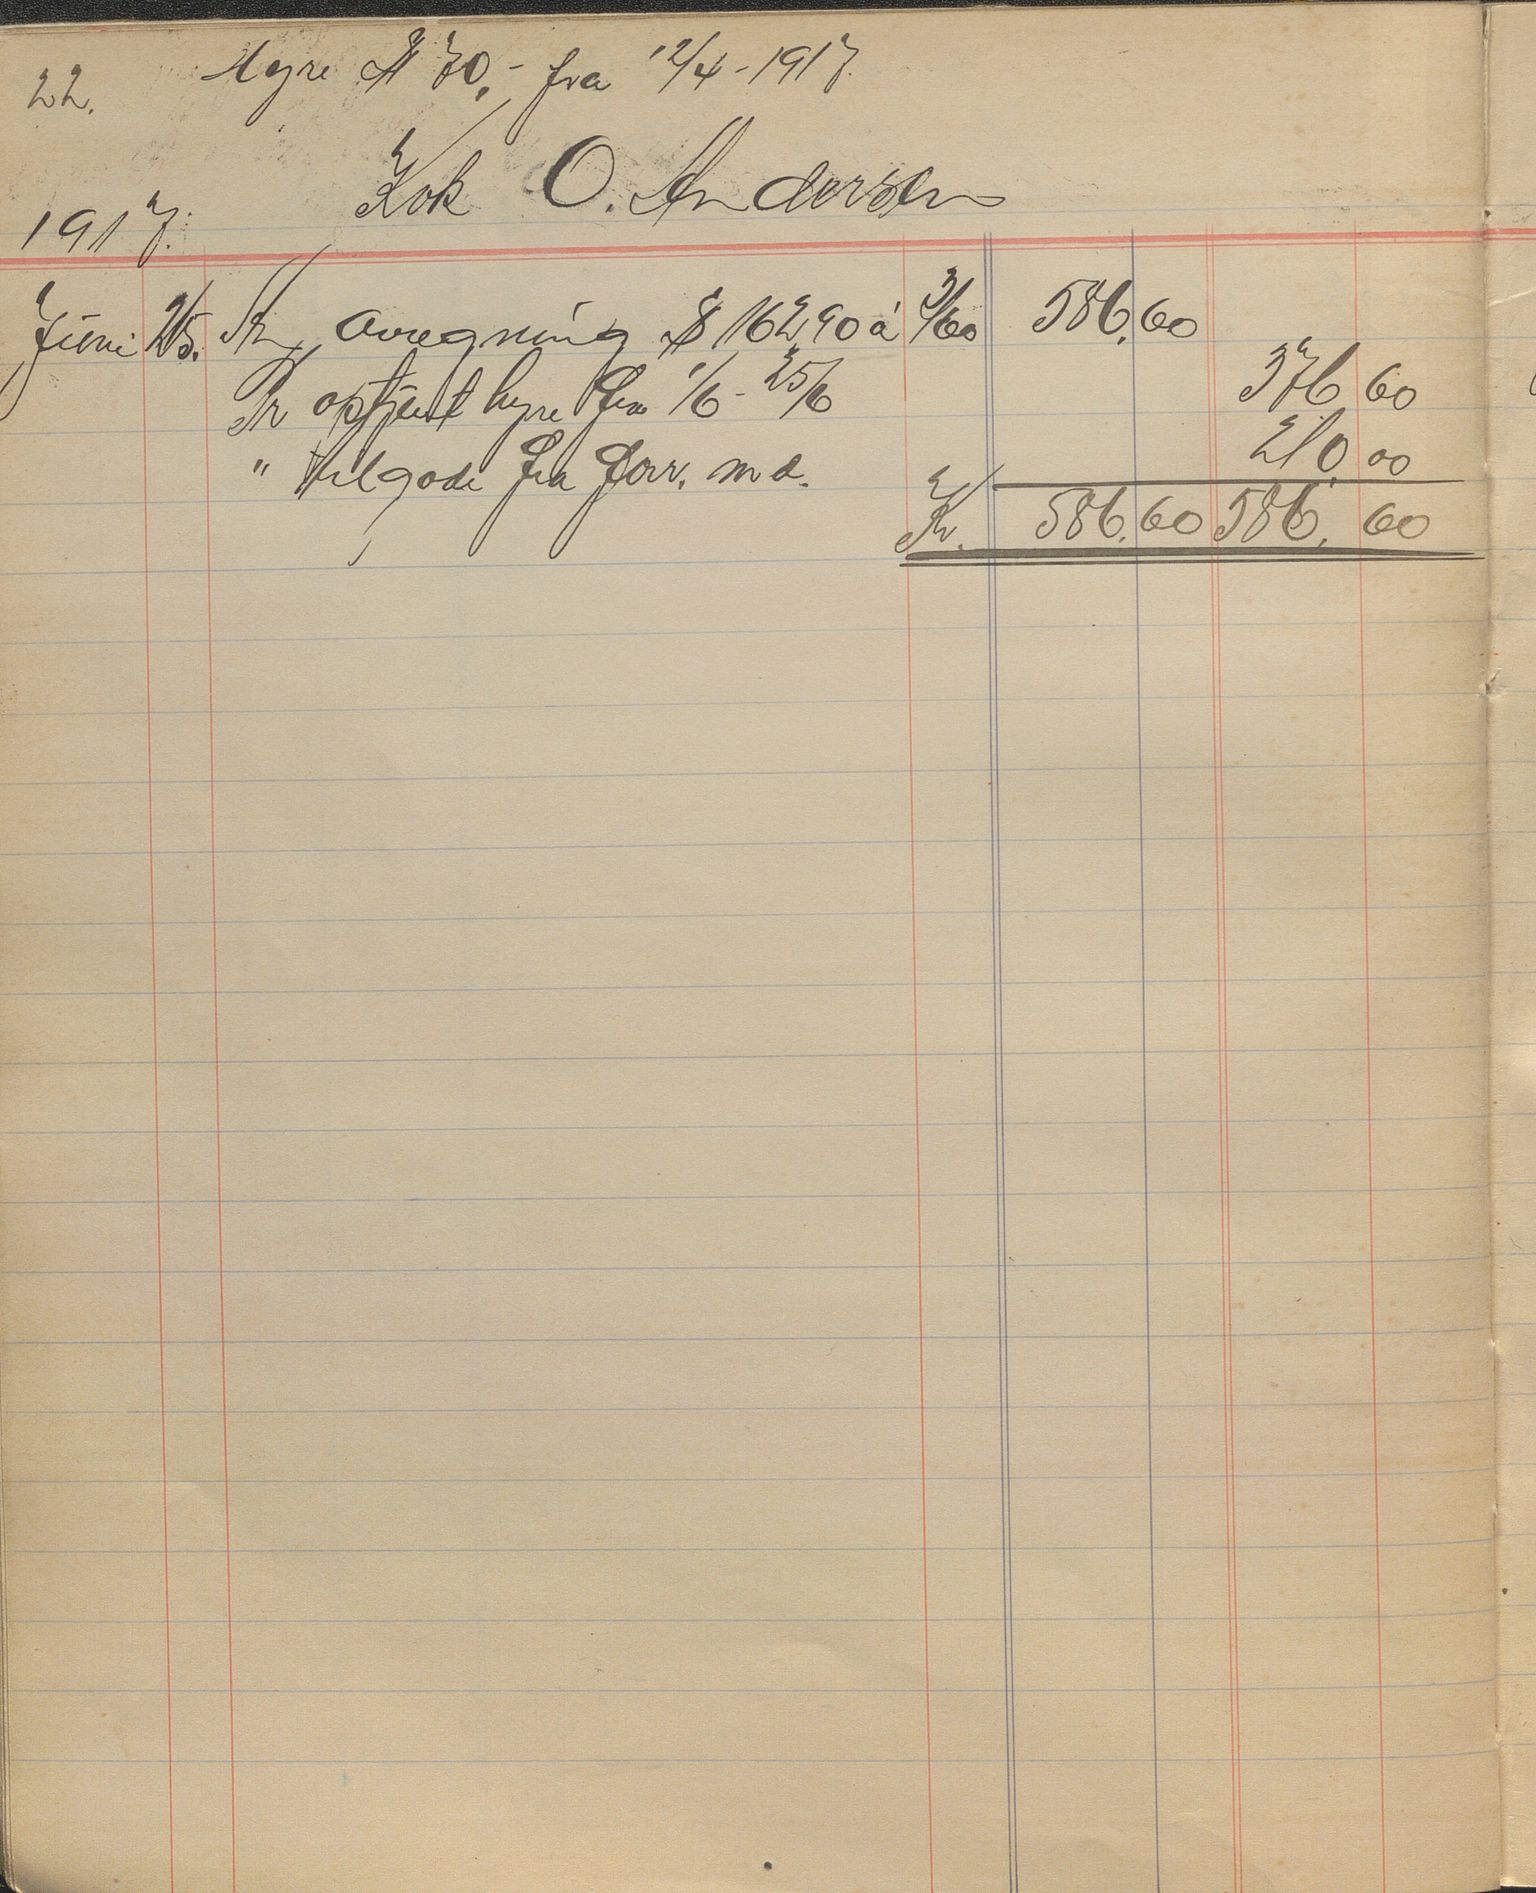 22. Hyre $ 70,- fra 12/4-1917.
Kok O. Andersen
1917.
Juni 25. Pr avregning $ 162,90 à 3/60 586,60
Pr optjent hyre fra 1/6 - 25/6 376 60
" tilgode fra forr. md. 210,00
Kr. 586,60 586,60